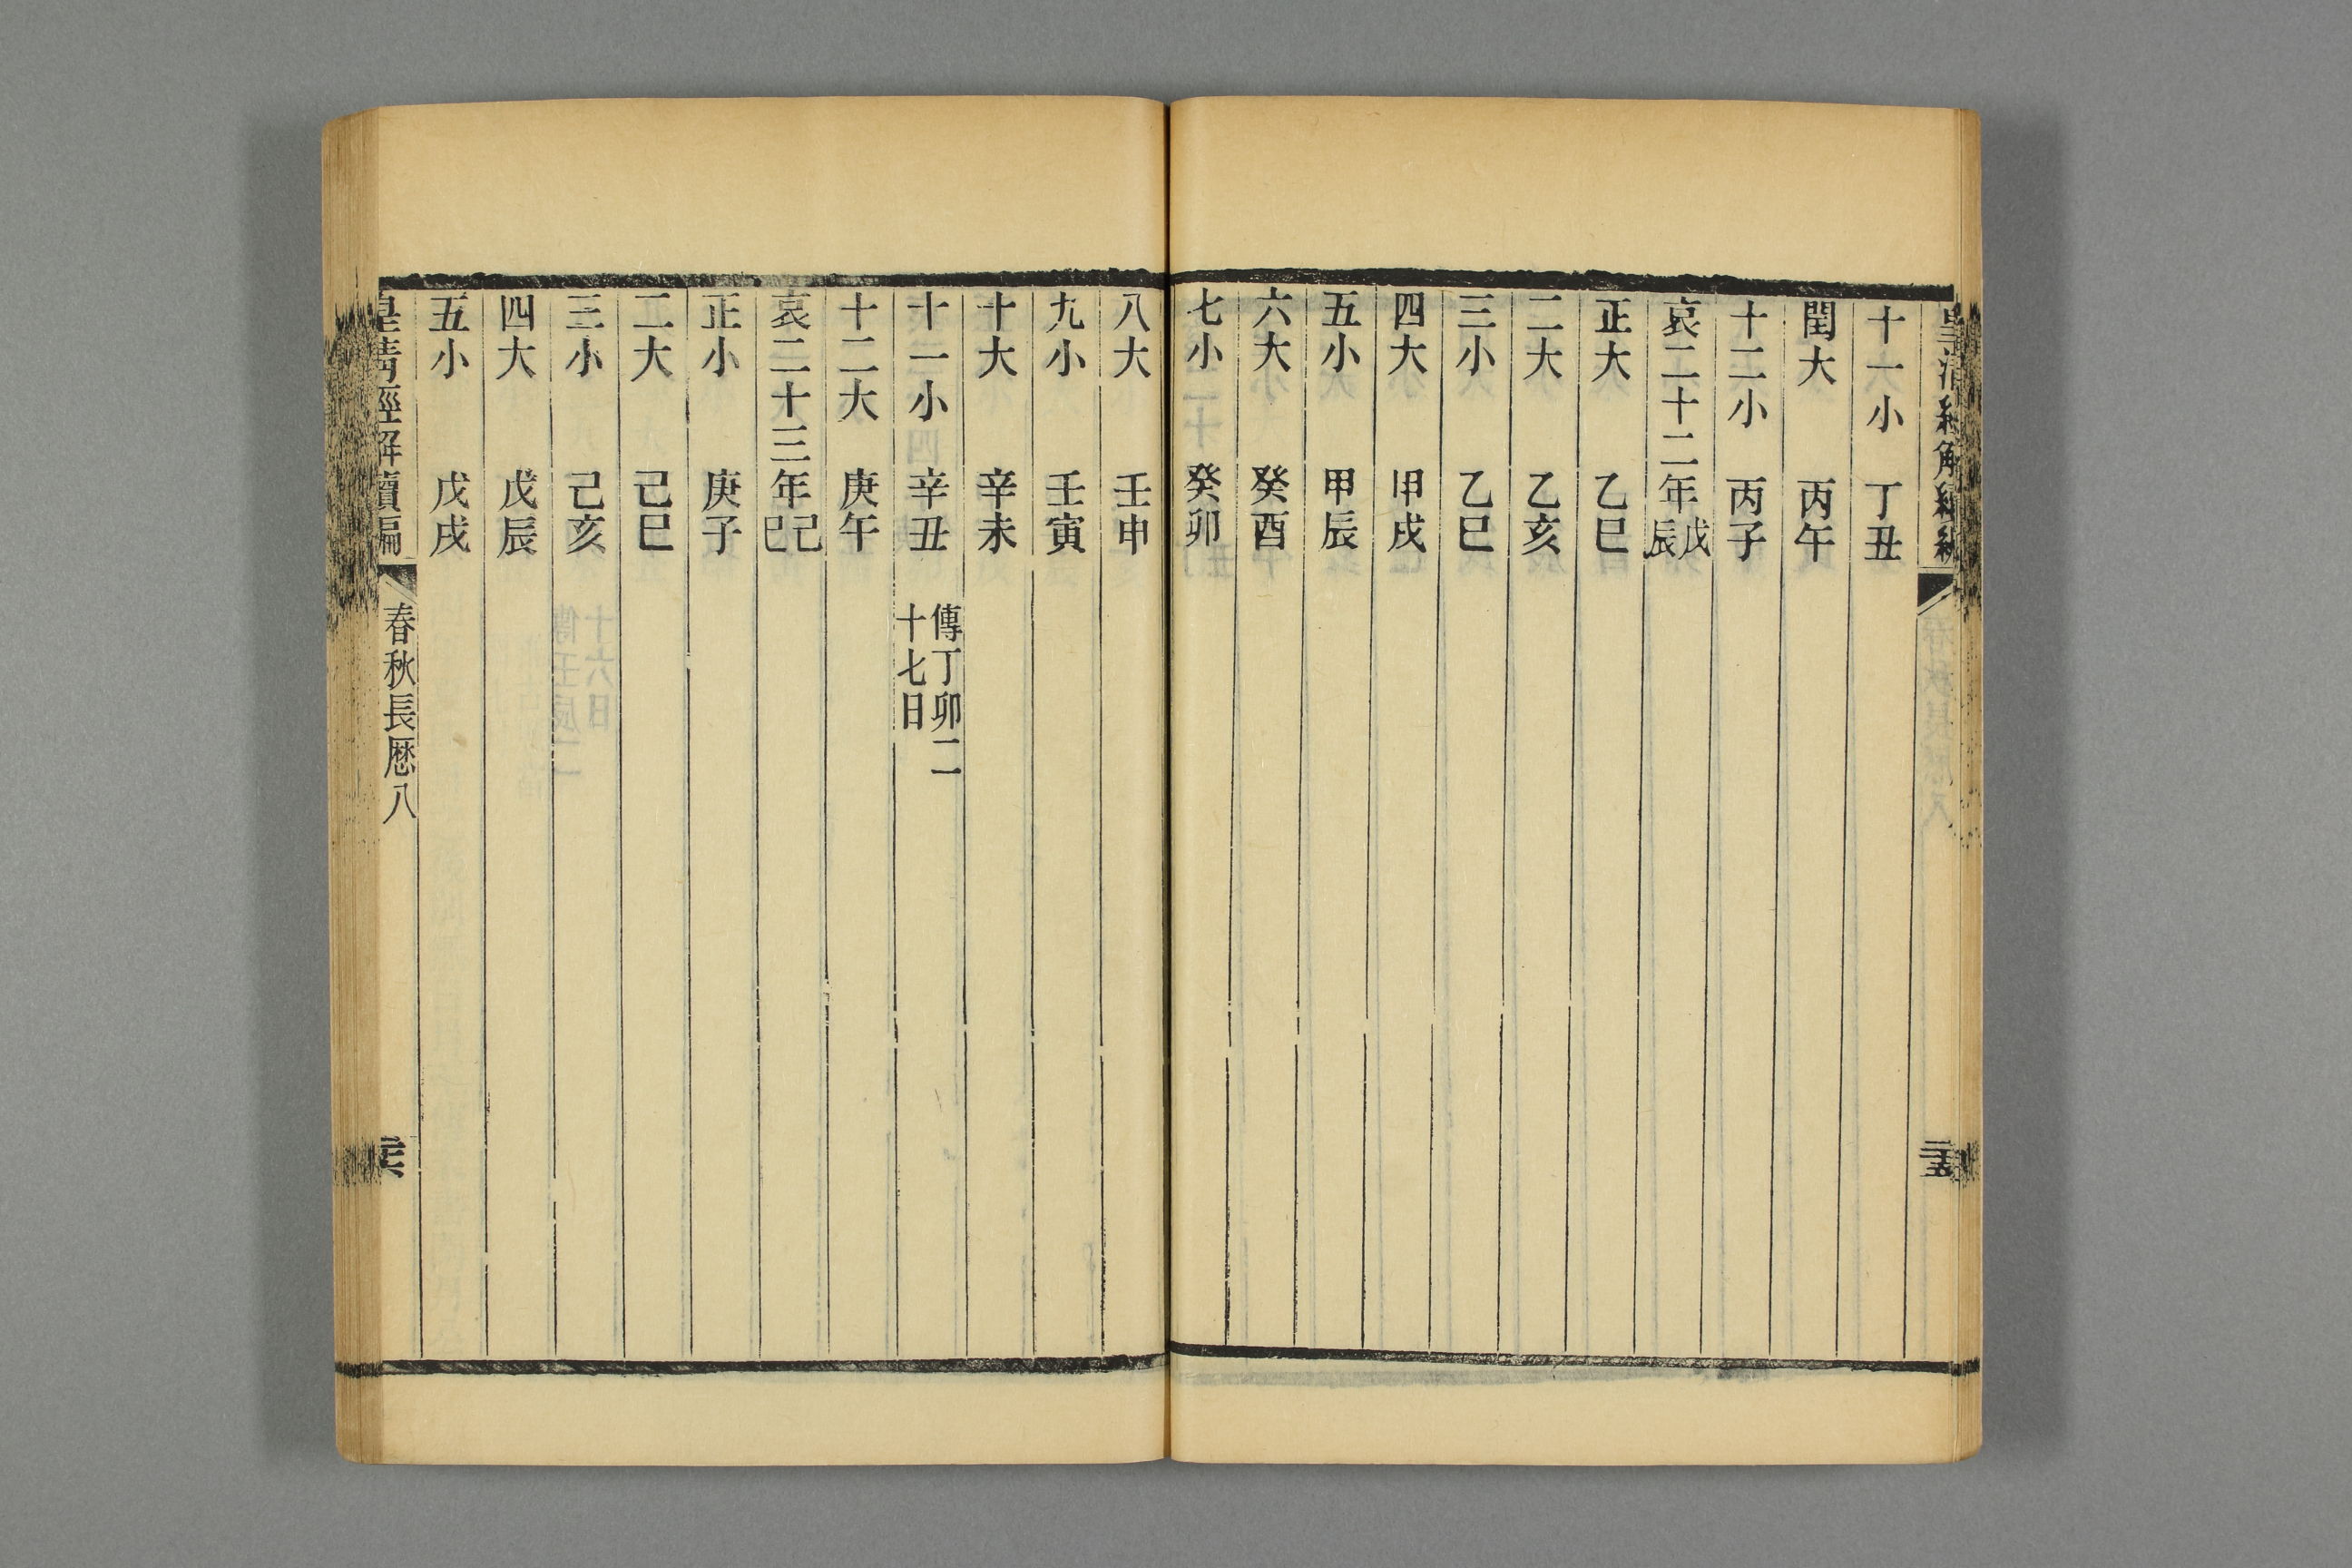 皇清經解續編
二十五
十一小 丁丑
閏大 丙午
十二小 丙子
哀二十二年戊辰
正大 乙巳
二大 乙亥
三小 乙巳
四大 甲戌
五小 甲辰
六大 癸酉
七小 癸卯
八大 壬申
九小 壬寅
十大 辛未
十一小 辛丑 傳丁卯二
十七日
十二大 庚午
哀二十三年己巳
正小 庚子
二大 己巳
三小 己亥
四大 戊辰
五小 戊戌
皇清經解續編
春秋長厯八
二十六